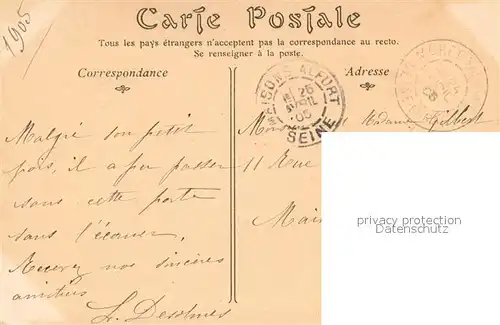 1905
Carte Postale
Tous les pays étrangers n'acceptent pas la correspondance au recto.
Se renseigner à la poste.
Correspondance
Adresse
MAISONS-ALFORT
26
AVRIL
05
SEINE
Madame Gilbert
11 Rue
Malgré son petit
pois, il a pu passer
sous cette porte
sans l'écraser.
Recevez nos sincères
amitiés
privacy protection